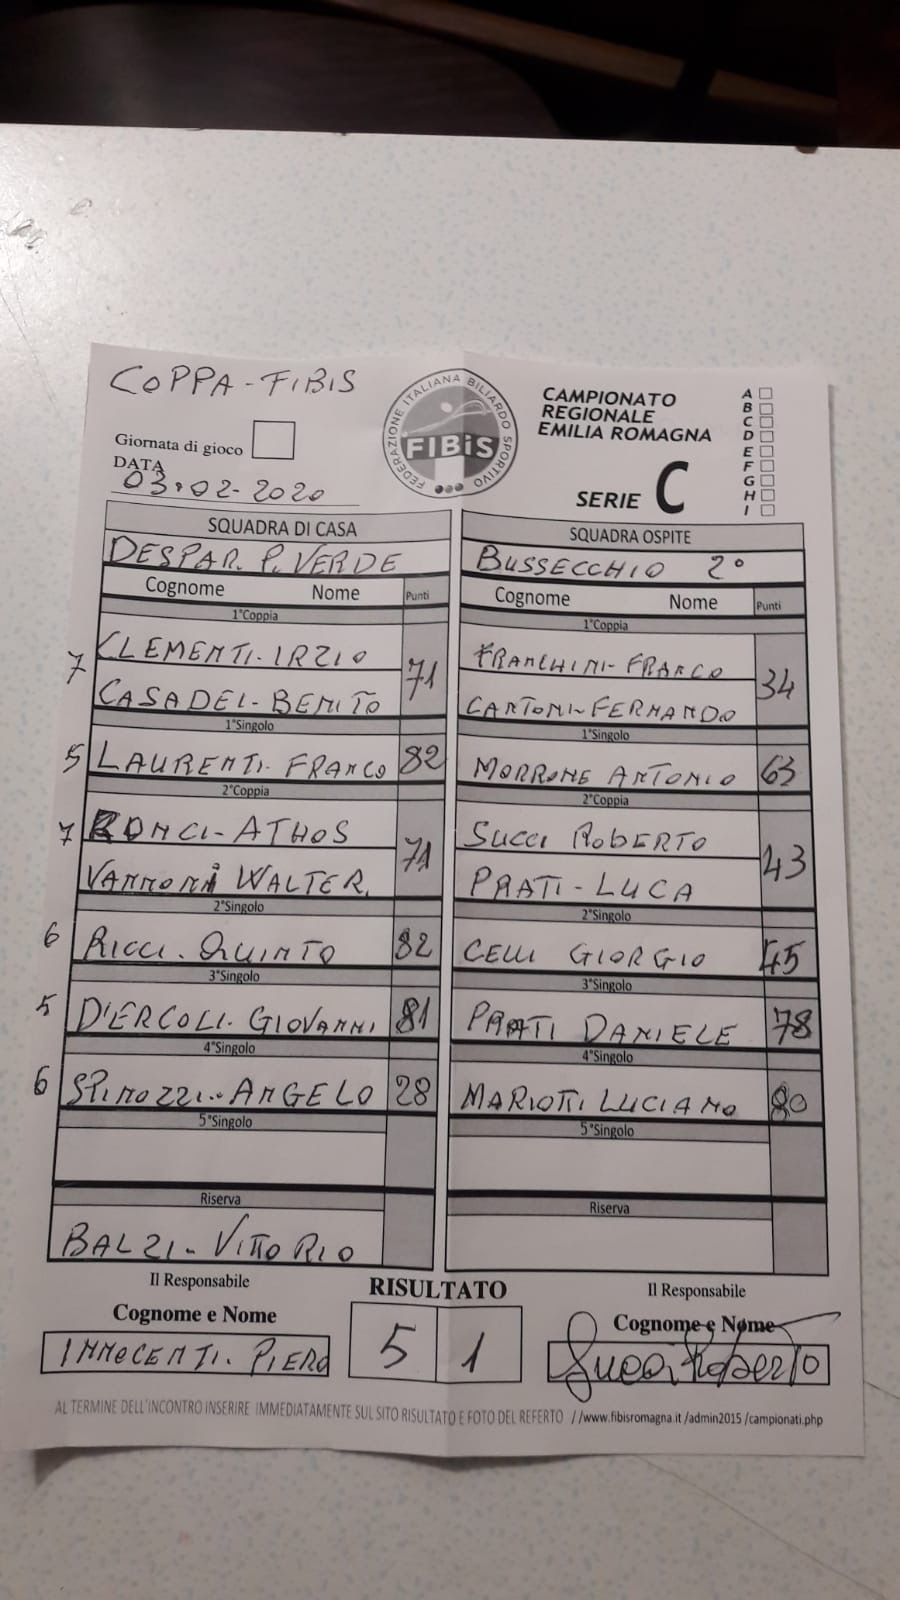 COPPA-FIBIS
FEDERAZIONE ITALIANA BILIARDO SPORTIVO
FIBiS
CAMPIONATO
REGIONALE
EMILIA ROMAGNA
SERIE C
A
B
C
D
E
F
G
H
I
Giornata di gioco
DATA
03.02-2020
SQUADRA DI CASA
DESPAR. P. VERDE
Cognome Nome Punti
1°Coppia
7 CLEMENTI-IRZIO 71
CASADEI-BENITO
1°Singolo
5 LAURENTI-FRANCO 82
2°Coppia
7 RONCI-ATHOS 71
VANNONI WALTER.
2°Singolo
6 RICCI. QUINTO 82
3°Singolo
5 D'ERCOLI-GIOVANNI 81
4°Singolo
6 SPINOZZI..ANGELO 28
5°Singolo
Riserva
BALZI-VITTORIO
SQUADRA OSPITE
BUSSECCHIO 2°
Cognome Nome Punti
1°Coppia
FRANCHINI-FRANCO 34
CANTONI-FERNANDO
1°Singolo
MORRONE ANTONIO 63
2°Coppia
SUCCI ROBERTO 43
PRATI-LUCA
2°Singolo
CELLI GIORGIO 45
3°Singolo
PRATI DANIELE 78
4°Singolo
MARIOTTI LUCIANO 80
5°Singolo
Riserva
Il Responsabile
Cognome e Nome
INNOCENTI. PIERO
RISULTATO
5 1
Il Responsabile
Cognome e Nome
Succi Roberto
AL TERMINE DELL'INCONTRO INSERIRE IMMEDIATAMENTE SUL SITO RISULTATO E FOTO DEL REFERTO //www.fibisromagna.it /admin2015 /campionati.php